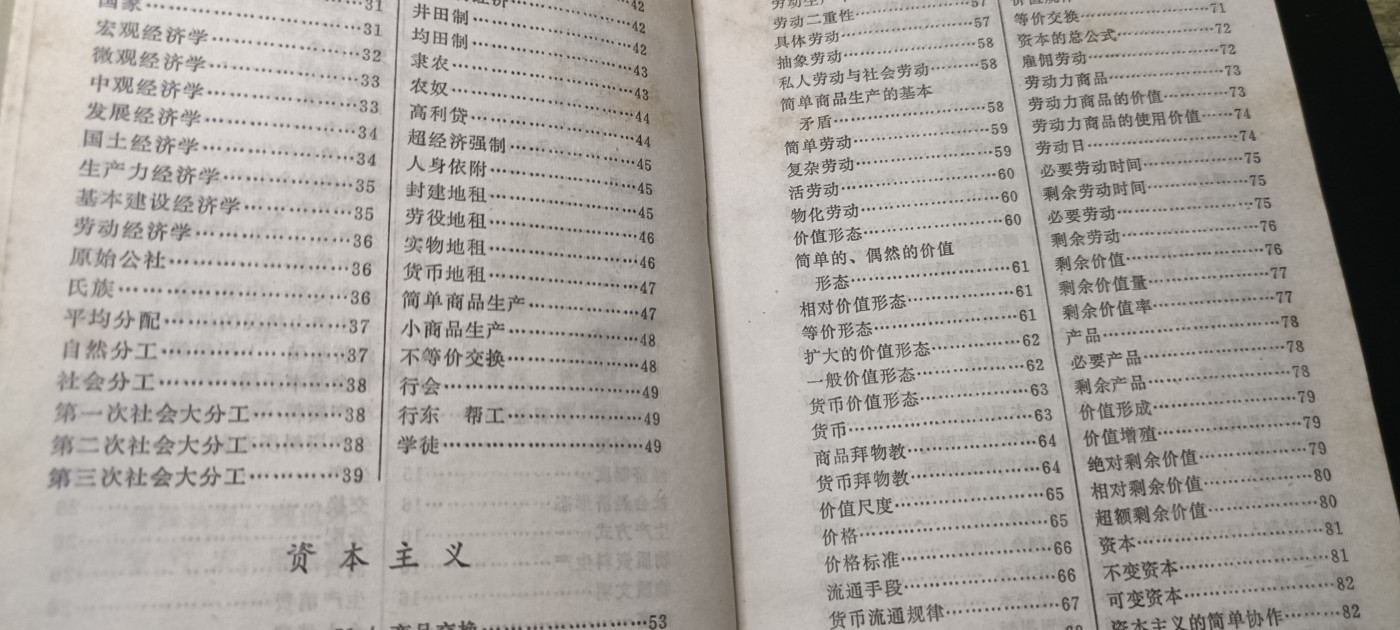 国家……31
宏观经济学……31
微观经济学……32
中观经济学……33
发展经济学……33
国土经济学……34
生产力经济学……34
基本建设经济学……35
劳动经济学……35
原始公社……36
氏族……36
平均分配……36
自然分工……37
社会分工……37
第一次社会大分工……38
第二次社会大分工……38
第三次社会大分工……38
39
42
井田制……42
均田制……42
隶农……43
农奴……43
高利贷……44
超经济强制……44
人身依附……45
封建地租……45
劳役地租……45
实物地租……46
货币地租……46
简单商品生产……47
小商品生产……47
不等价交换……48
行会……48
行东 帮工……49
学徒……49
49
资本主义
商品交换……53
57
劳动二重性……57
具体劳动……57
抽象劳动……58
私人劳动与社会劳动……58
简单商品生产的基本
矛盾……58
简单劳动……59
复杂劳动……59
活劳动……60
物化劳动……60
价值形态……60
简单的、偶然的价值
形态……61
相对价值形态……61
等价形态……61
扩大的价值形态……62
一般价值形态……62
货币价值形态……63
货币……63
商品拜物教……64
货币拜物教……64
价值尺度……65
价格……65
价格标准……66
流通手段……66
货币流通规律……67
等价交换……71
资本的总公式……72
雇佣劳动……72
劳动力商品……73
劳动力商品的价值……73
劳动力商品的使用价值……74
劳动日……74
必要劳动时间……75
剩余劳动时间……75
必要劳动……75
剩余劳动……76
剩余价值……76
剩余价值量……77
剩余价值率……77
产品……78
必要产品……78
剩余产品……78
价值形成……79
价值增殖……79
绝对剩余价值……79
相对剩余价值……80
超额剩余价值……80
资本……81
不变资本……81
可变资本……82
资本主义的简单协作……82